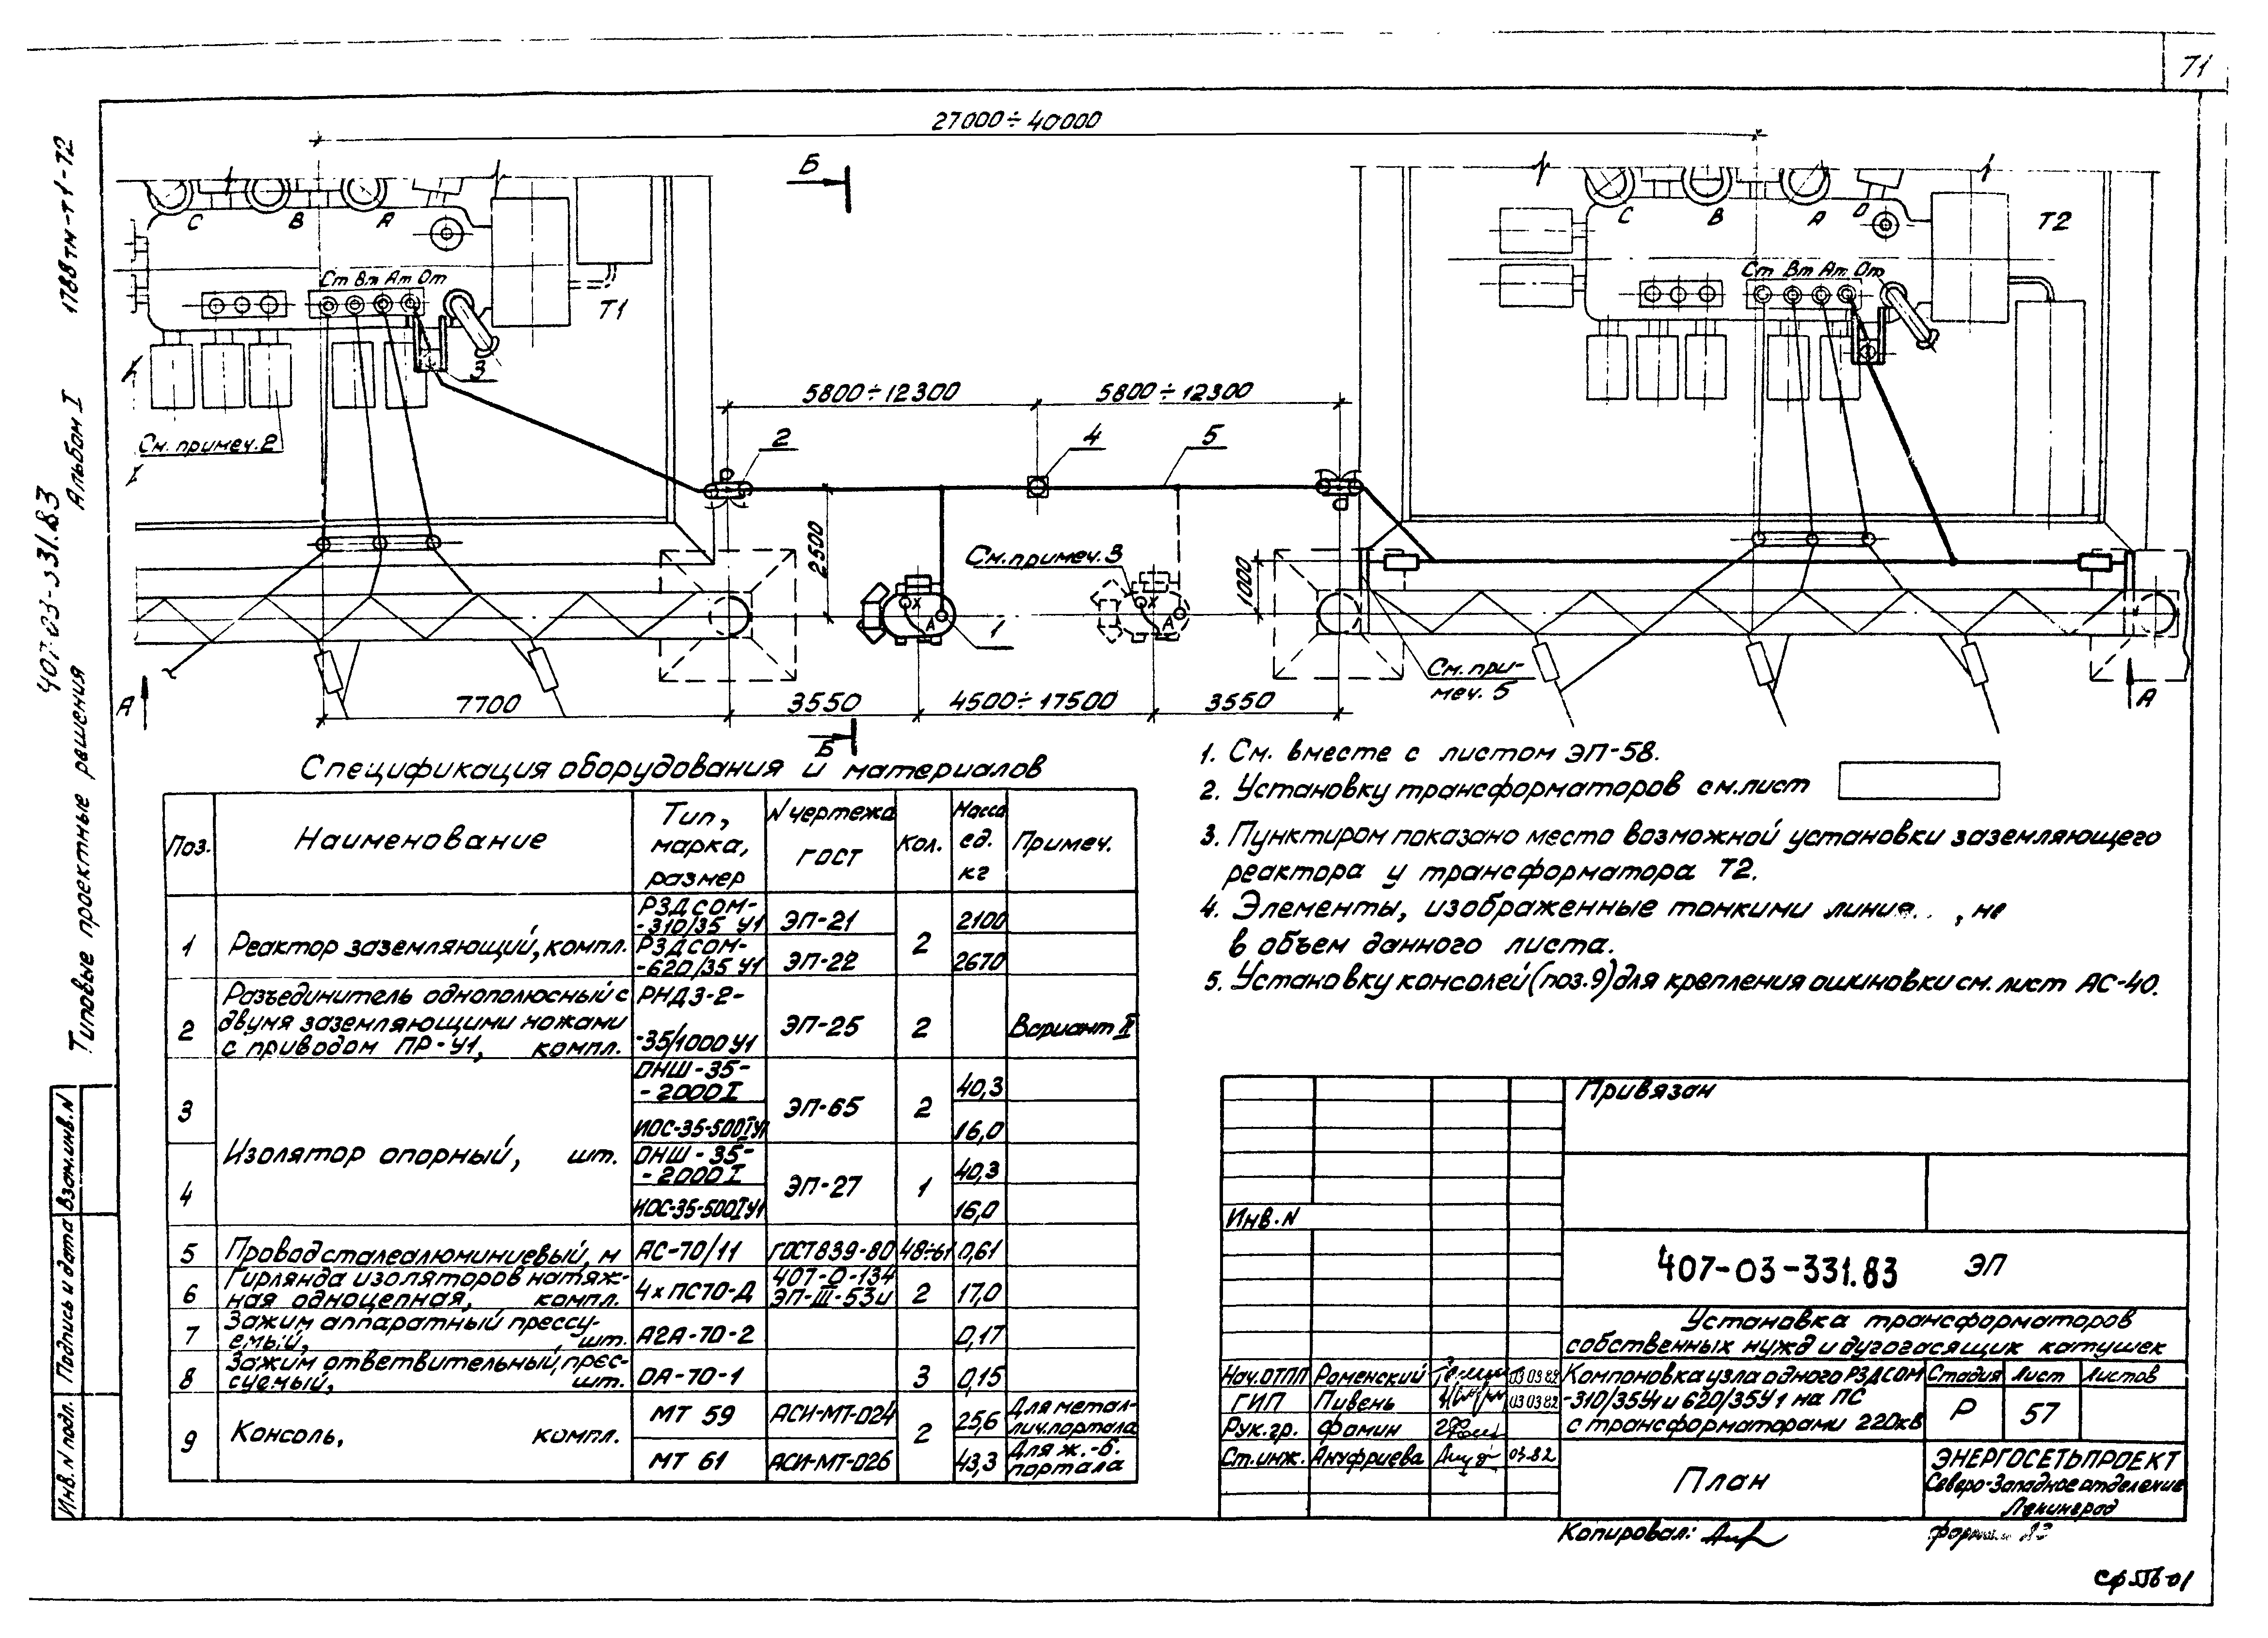 71
27000÷40000
Б
С В А
Ст Вт Ат От
Т1
3
См. примеч. 2
С В А О
Ст Вт Ат От
Т2
5800÷12300
5800÷12300
2
4
5
2500
См. примеч. 3
Х
А
1
Х
А
1000
См. при-
меч. 5
А
7700
3550
4500÷17500
3550
А
Б
1788тм-т1-т2
Альбом I
407-03-331.83
Типовые проектные решения
Взам.инв.N
Подпись и дата
Инв. N подл.
Спецификация оборудования и материалов
Поз. Наименование Тип, марка, размер N чертежа ГОСТ Кол. Масса ед. кг Примеч.
1 Реактор заземляющий, компл. РЗДСОМ-
-310/35 У1 ЭП-21 2 2100
РЗДСОМ-
-620/35 У1 ЭП-22 2670
2 Разъединитель однополюсный с РНДЗ-2-
двумя заземляющими ножами ЭП-25 2 Вариант II
с приводом ПР-У1, компл. -35/1000 У1
3 Изолятор опорный, шт. ОНШ-35-
-2000 I ЭП-65 2 40,3
ИОС-35-500 I У1 16,0
4 ОНШ-35-
-2000 I ЭП-27 1 40,3
ИОС-35-500 I У1 16,0
5 Провод сталеалюминиевый, м АС-70/11 ГОСТ 839-80 48÷61 0,61
6 Гирлянда изоляторов натяж-
ная одноцепная, компл. 4хПС70-Д 407-0-134
ЭП-III-53и 2 17,0
7 Зажим аппаратный прессу-
емый, шт. А2А-70-2 0,17
8 Зажим ответвительный, прес-
суемый, шт. ОА-70-1 3 0,15
9 Консоль, компл. МТ 59 АСИ-МТ-024 2 25,6 Для метал-
лич. портала
МТ 61 АСИ-МТ-026 43,3 Для ж.-б.
портала
1. См. вместе с листом ЭП-58.
2. Установку трансформаторов см. лист
3. Пунктиром показано место возможной установки заземляющего
реактора у трансформатора Т2.
4. Элементы, изображенные тонкими , не
в объем данного листа.
5. Установку консолей (поз. 9) для крепления ошиновки см. лист АС-40.
Привязан
Инв. N
407-03-331.83 ЭП
Установка трансформаторов
собственных нужд и дугогасящих катушек
Нач. ОТПП Роменский 03 03 82
ГИП Пивень 03 03 82
Рук. гр. Фомин
Ст. инж. Ануфриева 03.82
Компоновка узла одного РЗДСОМ
-310/35У1 и 620/35У1 на ПС
с трансформаторами 220кв
Стадия Лист Листов
Р 57
План
ЭНЕРГОСЕТЬПРОЕКТ
Северо-Западное отделение
Ленинград
Копировал:
формат А3